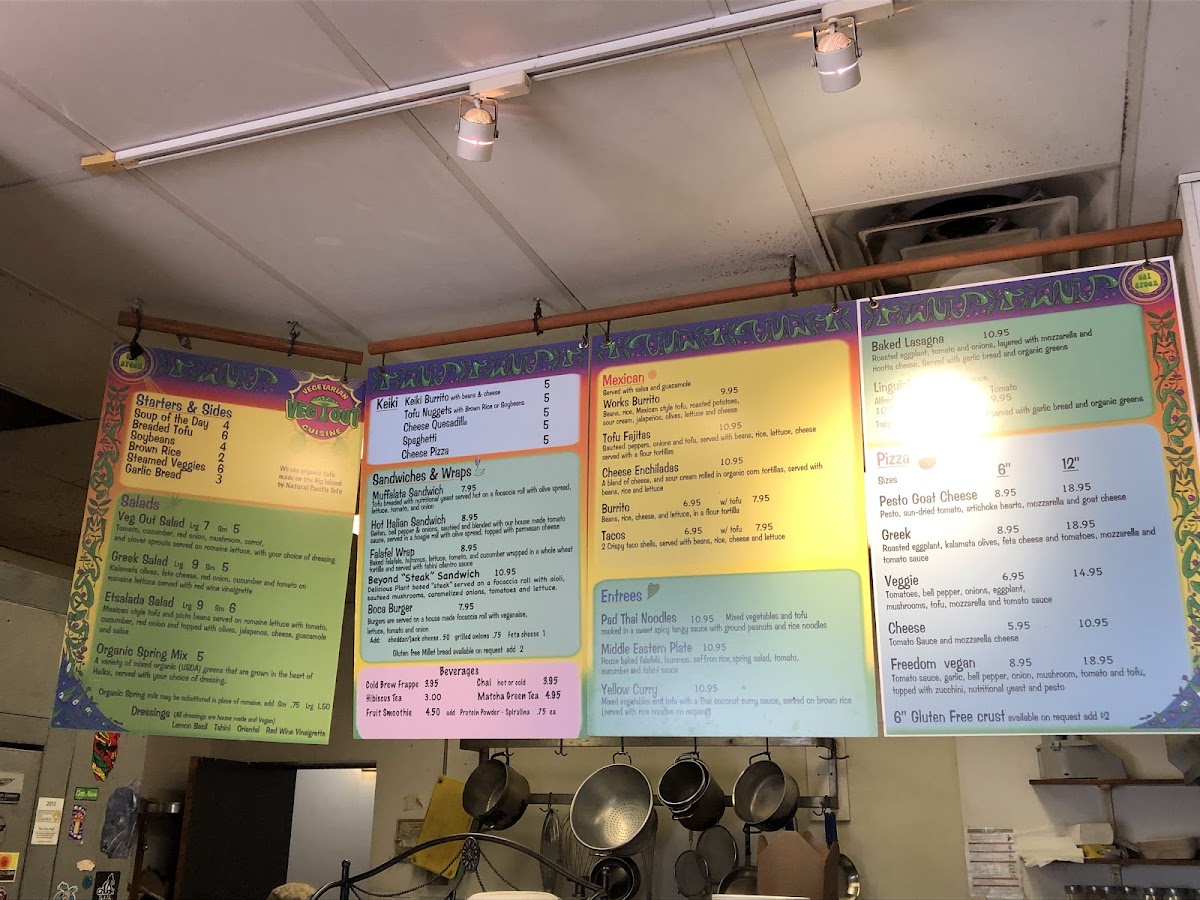 Starters & Sides
Soup of the Day 4
Breaded Tofu 6
Soybeans 4
Brown Rice 2
Steamed Veggies 6
Garlic Bread 3
VEGETARIAN
VEG OUT
CUISINE
We use organic tofu
made on the Big Island
by Natural Pacific Tofu
Salads
Veg Out Salad Lrg 7 Sm 5
Tomato, cucumber, red onion, mushroom, carrot,
and clover sprouts served on romaine lettuce, with your choice of dressing
Greek Salad Lrg 9 Sm 5
Kalamata olives, feta cheese, red onion, cucumber and tomato on
romaine lettuce served with red wine vinaigrette
Etsalada Salad Lrg 9 Sm 6
Mexican style tofu and pinto beans served on romaine lettuce with tomato,
cucumber, red onion and topped with olives, jalapenos, cheese, guacamole
and salsa
Organic Spring Mix 5
A variety of mixed organic (USDA) greens that are grown in the heart of
Haiku, served with your choice of dressing.
Organic Spring mix may be substituted in place of romaine, add Sm .75 Lrg 1.50
Dressings (All dressings are house made and Vegan)
Lemon Basil Tahini Oriental Red Wine Vinaigrette
Keiki Keiki Burrito with beans & cheese 5
Tofu Nuggets with Brown Rice or Soybeans 5
Cheese Quesadilla 5
Spaghetti 5
Cheese Pizza 5
Sandwiches & Wraps
Muffalata Sandwich 7.95
Tofu breaded with nutritional yeast served hot on a focaccia roll with olive spread,
lettuce, tomato, and onion
Hot Italian Sandwich 8.95
Seitan, bell pepper & onions, sautéed and blended with our house made tomato
sauce, served in a hoagie roll with olive spread, topped with parmesan cheese
Falafel Wrap 8.95
Baked falafels, hummus, lettuce, tomato, and cucumber wrapped in a whole wheat
tortilla and served with tahini cilantro sauce
Beyond "Steak" Sandwich 10.95
Delicious Plant based "steak" served on a focaccia roll with aioli,
sauteed mushrooms, caramelized onions, tomatoes and lettuce.
Boca Burger 7.95
Burgers are served on a house made focaccia roll with veganaise,
lettuce, tomato and onion
Add: cheddar/jack cheese .50 grilled onions .75 Feta cheese 1
Gluten free Millet bread available on request add 2
Beverages
Cold Brew Frappe 3.95 Chai hot or cold 3.95
Hibiscus Tea 3.00 Matcha Green Tea 4.95
Fruit Smoothie 4.50 add Protein Powder - Spirulina .75 ea
Mexican
Served with salsa and guacamole
Works Burrito 9.95
Beans, rice, Mexican style tofu, roasted potatoes,
sour cream, jalapenos, olives, lettuce and cheese
Tofu Fajitas 10.95
Sauteed peppers, onions and tofu, served with beans, rice, lettuce, cheese
served with a flour tortilla
Cheese Enchiladas 10.95
A blend of cheese, and sour cream rolled in organic corn tortillas, served with
beans, rice and lettuce
Burrito 6.95 w/ tofu 7.95
Beans, rice, cheese, and lettuce, in a flour tortilla
Tacos 6.95 w/ tofu 7.95
2 Crispy taco shells, served with beans, rice, cheese and lettuce
Entrees
Pad Thai Noodles 10.95 Mixed vegetables and tofu
cooked in a sweet spicy tangy sauce with ground peanuts and rice noodles
Middle Eastern Plate 10.95
House baked falafels, hummus, saffron rice, spring salad, tomato,
cucumber and tahini sauce
Yellow Curry 10.95
Mixed vegetables and tofu with a Thai coconut curry sauce, served on brown rice
(served with rice noodles on request)
Baked Lasagna 10.95
Roasted eggplant, tomato and onions, layered with mozzarella and
ricotta cheese. Served with garlic bread and organic greens
Linguini
Alfre Tomato
10 9.95
served with garlic bread and organic greens
Pizza
Sizes 6" 12"
Pesto Goat Cheese 8.95 18.95
Pesto, sun-dried tomato, artichoke hearts, mozzarella and goat cheese
Greek 8.95 18.95
Roasted eggplant, kalamata olives, feta cheese and tomatoes, mozzarella and
tomato sauce
Veggie 6.95 14.95
Tomatoes, bell pepper, onions, eggplant,
mushrooms, tofu, mozzarella and tomato sauce
Cheese 5.95 10.95
Tomato Sauce and mozzarella cheese
Freedom vegan 8.95 18.95
Tomato sauce, garlic, bell pepper, onion, mushroom, tomato and tofu,
topped with zucchini, nutritional yeast and pesto
6" Gluten Free crust available on request add $2